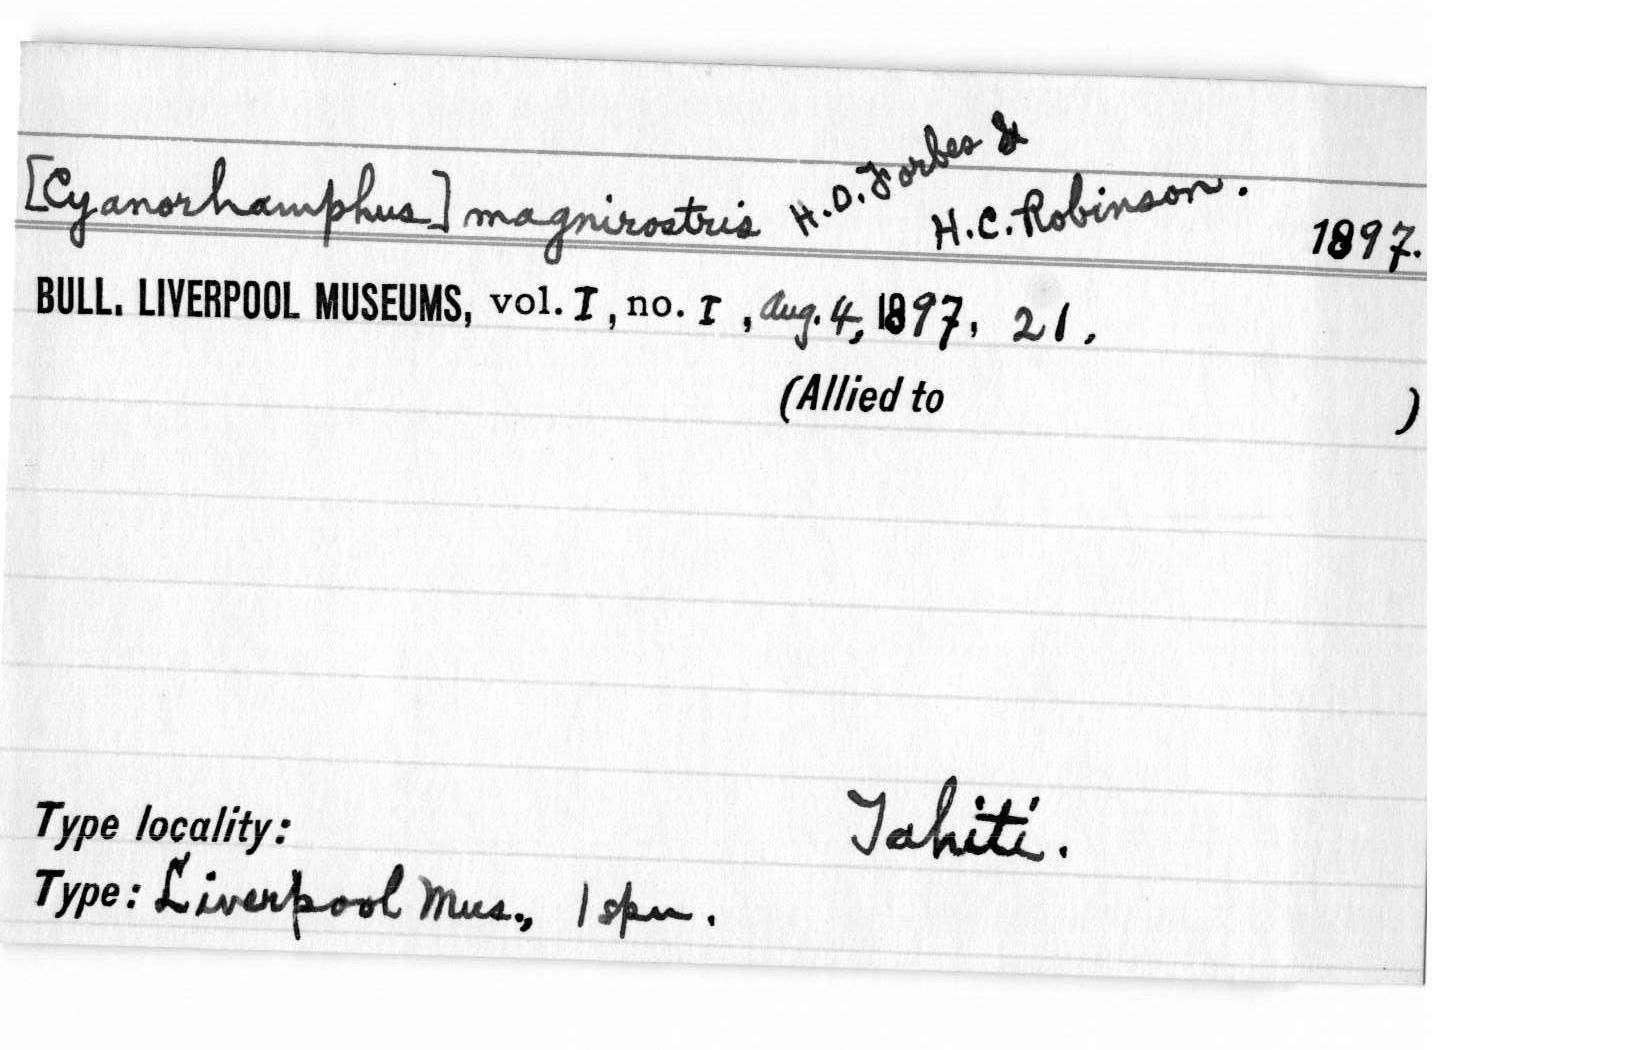 [Cyanorhamphus] magnirostris H.O. Forbes &
H.C. Robinson. 1897.
BULL. LIVERPOOL MUSEUMS, vol. I, no. I, Aug. 4, 1897, 21.
(Allied to )
Type locality: Tahiti.
Type: Liverpool Mus., 1 spm.